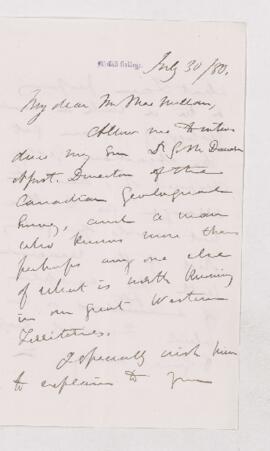 McGill College,
July 30/80.
My dear Mr MacMillan,
Allow me to intro
duce my son Dr G. M. Dawson
Asst. Director of the
Canadian Geological
Survey, and a man
who knows more than
perhaps any one else
of what is worth knowing
in our great Western
Territories.
I specially wish him
to explain to you